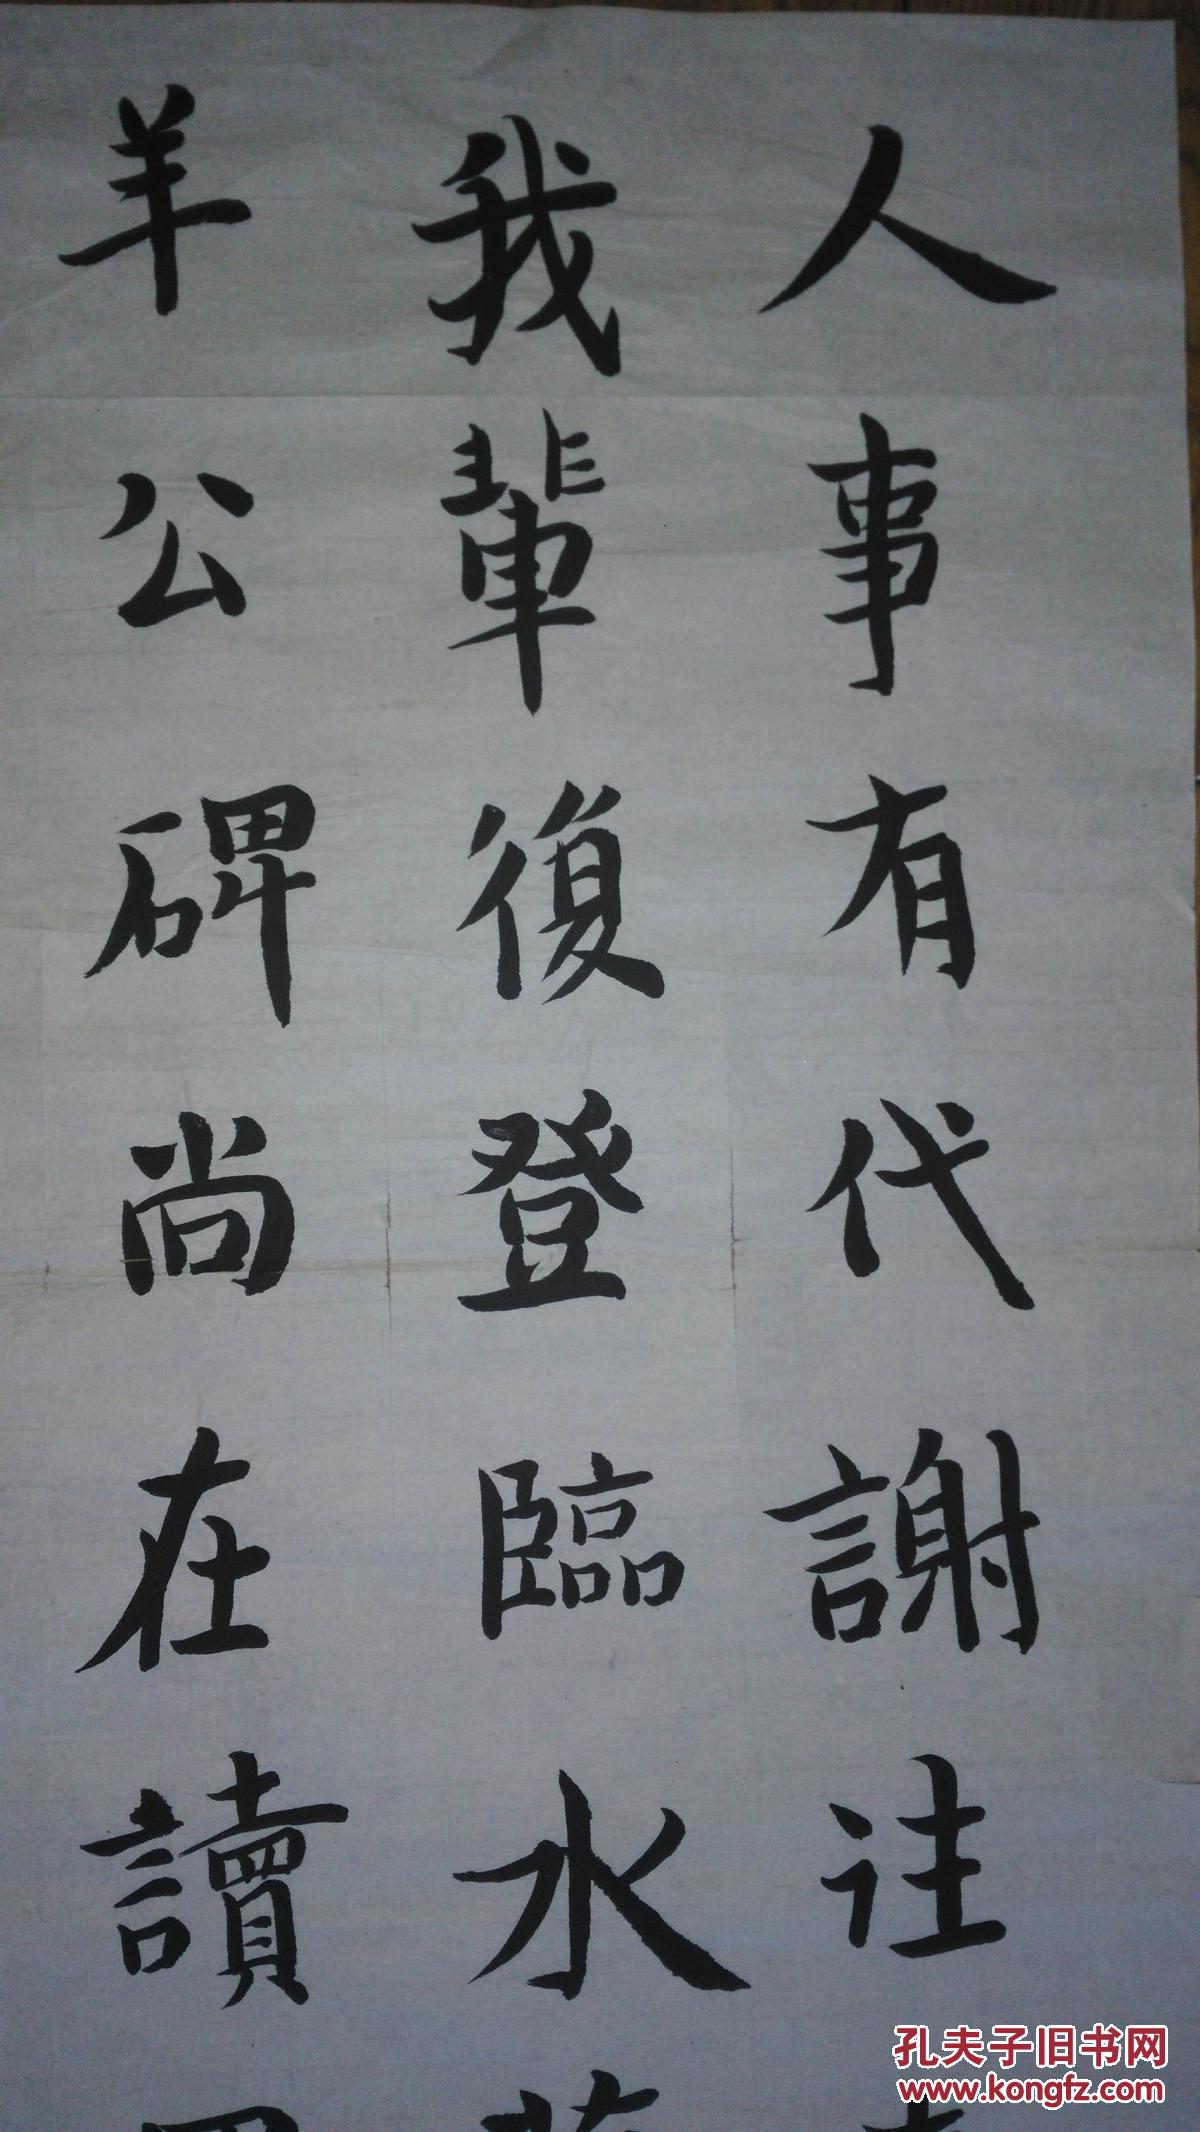 人事有代謝往
我輩復登臨水
羊公碑尚在讀
孔夫子旧书网
www.kongfz.com